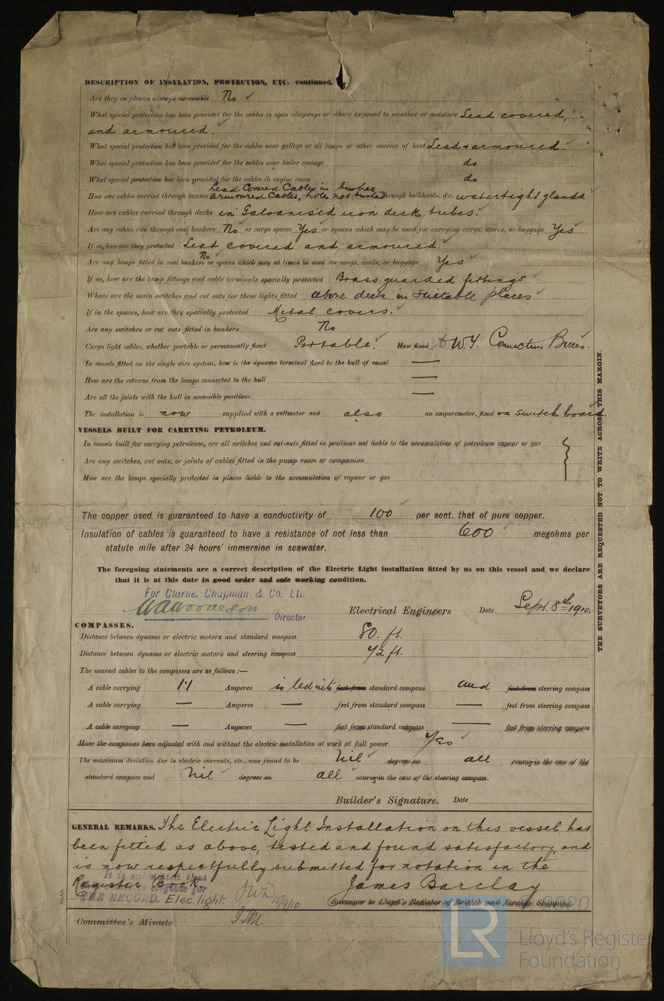 DESCRIPTION OF INSULATION, PROTECTION, ETC. continued.
Are they in places always accessible No
What special protection has been provided for the cables in open alleyways or where exposed to weather or moisture Lead covered,
and armoured.
What special protection has been provided for the cables near galleys or oil lamps or other sources of heat Lead & armoured.
What special protection has been provided for the cables near boiler casings do
What special protection has been provided for the cables in engine room do
Lead Covered Cables in
How are cables carried through beams Armoured Cables, holes not through bulkheads, &c. watertight glands
How are cables carried through decks in Galvanised iron deck tubes.
Are any cables run through coal bunkers No or cargo spaces Yes or spaces which may be used for carrying cargo, stores, or baggage Yes
If so, how are they protected Lead covered and armoured.
Are any lamps fitted in coal bunkers No or spaces which may at times be used for cargo, coals, or baggage Yes
If so, how are the lamp fittings and cable terminals specially protected Brass guarded fittings
Where are the main switches and cut outs for these lights fitted above deck in suitable places
If in the spaces, how are they specially protected Metal covers.
Are any switches or cut outs fitted in bunkers No
Cargo light cables, whether portable or permanently fixed Portable. How fixed W.T. Connection Boxes.
In vessels fitted on the single wire system, how is the dynamo terminal fixed to the hull of vessel —
How are the returns from the lamps connected to the hull —
Are all the joints with the hull in accessible positions —
The installation is now supplied with a voltmeter and also an amperemeter, fixed on switch board
VESSELS BUILT FOR CARRYING PETROLEUM.
In vessels built for carrying petroleum, are all switches and cut-outs fitted in positions not liable to the accumulation of petroleum vapour or gas
Are any switches, cut outs, or joints of cables fitted in the pump room or companion
How are the lamps specially protected in places liable to the accumulation of vapour or gas
The copper used is guaranteed to have a conductivity of 100 per cent. that of pure copper.
Insulation of cables is guaranteed to have a resistance of not less than 600 megohms per
statute mile after 24 hours' immersion in seawater.
The foregoing statements are a correct description of the Electric Light installation fitted by us on this vessel and we declare
that it is at this date in good order and safe working condition.
For Clarke, Chapman & Co. Ltd
Director Electrical Engineers Date Sept. 8th 1910.
COMPASSES.
Distance between dynamo or electric motors and standard compass 80. ft.
Distance between dynamo or electric motors and steering compass 72 ft.
The nearest cables to the compasses are as follows:—
A cable carrying 1.1 Amperes is led into feet from standard compass and feet from steering compass
A cable carrying — Amperes — feet from standard compass — feet from steering compass
A cable carrying — Amperes — feet from standard compass — feet from steering compass
Have the compasses been adjusted with and without the electric installation at work at full power Yes
The maximum deviation due to electric currents, etc., was found to be Nil degrees on all course in the case of the
standard compass and Nil degrees on all course in the case of the steering compass.
Builder's Signature. Date
GENERAL REMARKS. The Electric Light Installation on this vessel has
been fitted as above, tested and found satisfactory, and
is now respectfully submitted for notation in the
Register Book.
It is submitted that
THE RECORD. Elec. light. 15/9/10
James Barclay
Surveyor to Lloyd's Register of British and Foreign Shipping
Committee's Minute
THE SURVEYORS ARE REQUESTED NOT TO WRITE ACROSS THIS MARGIN.
LR
Lloyd's Register
Foundation